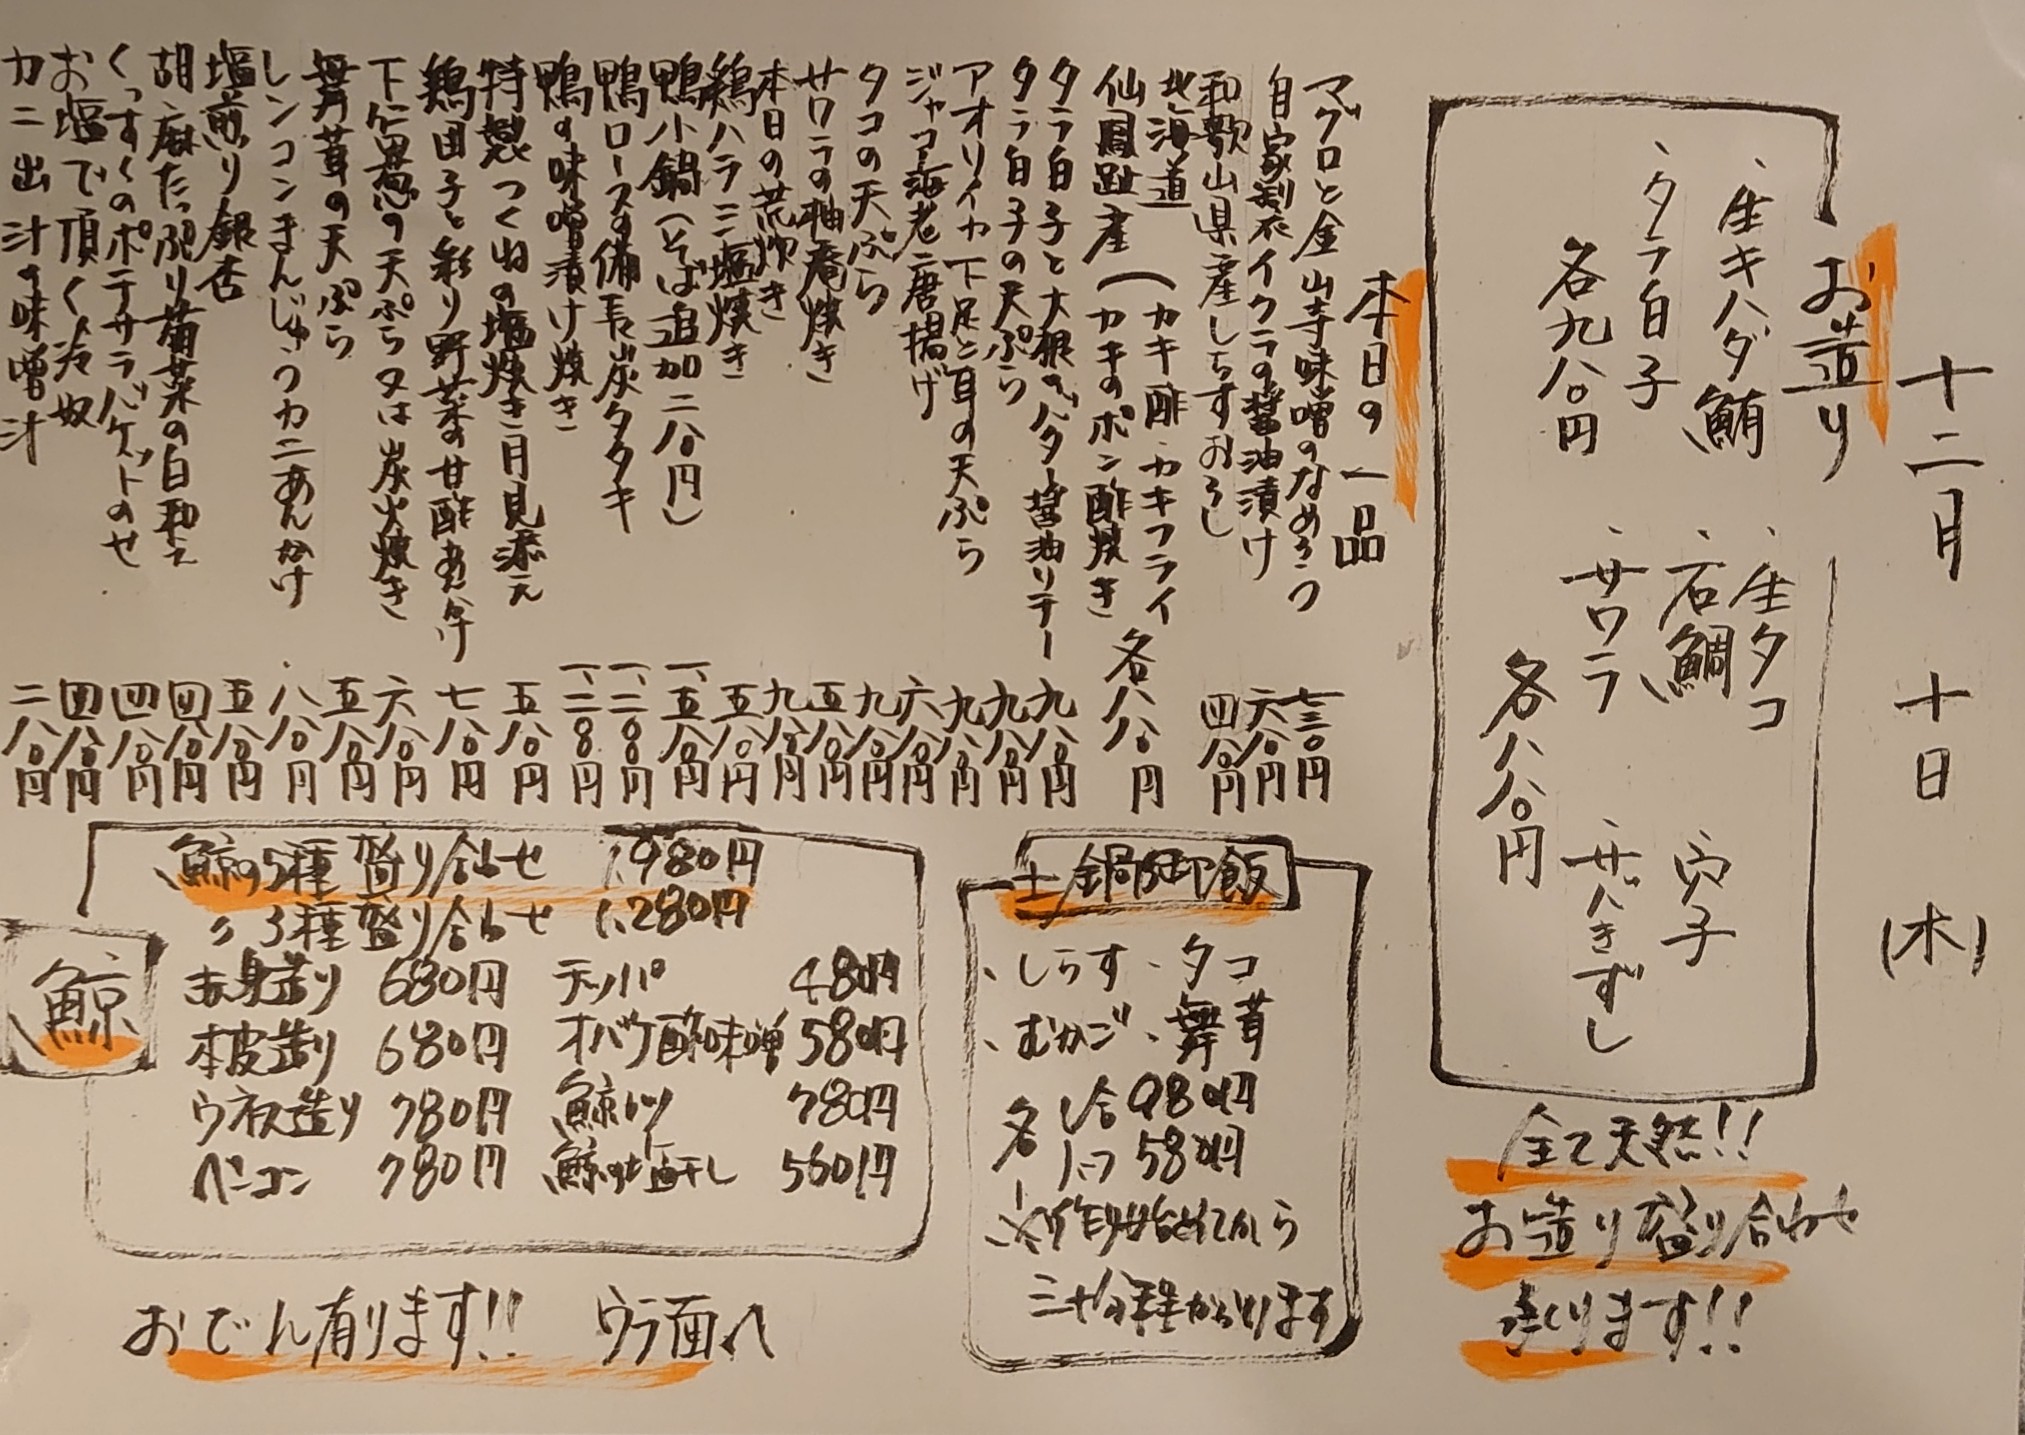 十二月 十日 (木)
お造り
、生キハダ鮪 、生タコ
、タラ白子 、石鯛 、穴子
各九八〇円 、サワラ 、サバきずし
各八八〇円
全て天然!!
お造り盛り合わせ
承ります!!
本日の一品
マグロと金山寺味噌のなめろう 七三〇円
自家製イクラの醤油漬け 六八〇円
和歌山県産しらすおろし 四八〇円
北海道
仙鳳趾産(カキ酢・カキフライ
カキのポン酢焼き 各八八〇円
タラ白子と大根のバター醤油ソテー 九八〇円
タラ白子の天ぷら 九八〇円
アオリイカ下足と耳の天ぷら 九八〇円
ジャコ海老唐揚げ 六八〇円
タコの天ぷら 九八〇円
サワラの柚庵焼き 五八〇円
本日の荒炊き 九八〇円
鶏ハラミ塩焼き 五八〇円
鴨小鍋(そば追加二八〇円) 一、五八〇円
鴨ロースの備長炭タタキ 一、二八〇円
鴨の味噌漬け焼き 一、二八〇円
特製つくねの塩焼き月見添え 五八〇円
鶏団子と彩り野菜の甘酢あんかけ 七八〇円
下仁田葱の天ぷら又は炭火焼き 六八〇円
舞茸の天ぷら 五八〇円
レンコンまんじゅうカニあんかけ 八八〇円
塩煎り銀杏 五八〇円
胡麻たっぷり菊菜の白和え 四八〇円
くっすくのポテサラバゲットのせ 四八〇円
お塩で頂く冷奴 四八〇円
カニ出汁の味噌汁 二八〇円
土鍋御飯
、しらす 、タコ
、むかご 、舞茸
各 1合 980円
ハーフ 580円
※炊き始めてから
三十分程かかります
鯨
鯨の5種盛り合わせ 1,980円
〃 3種盛り合わせ 1,280円
赤身造り 680円 テッパ 480円
本皮造り 680円 オバケ酢味噌 580円
ウネ造り 780円 鯨カツ 780円
ベーコン 780円 鯨の塩干し 560円
おでん有ります!! ウラ面へ